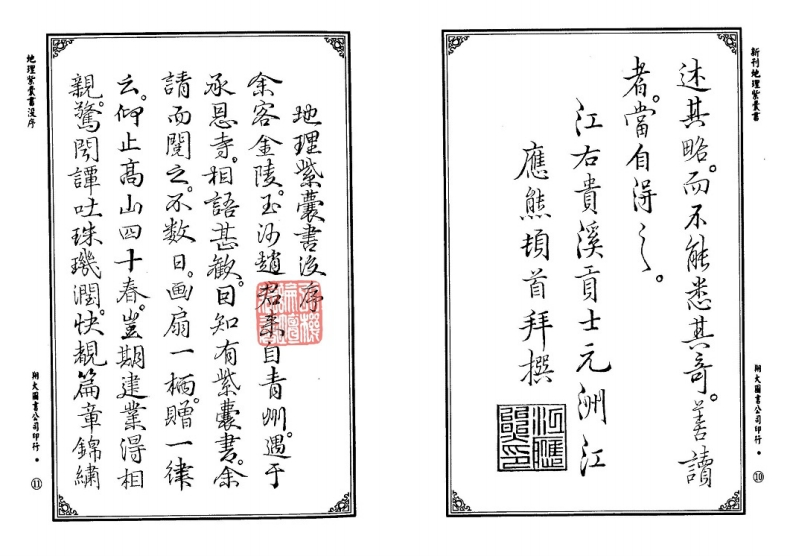 新刊地理紫囊書
述其略。而不能悉其奇。善讀
者。當自得之。
江右貴溪貢士元洲江
應熊頓首拜撰
翔大圖書公司印行
⑩
地理紫囊書後序
余客金陵。玉沙趙君来自青州。遇于
承恩寺。相語甚歡。因知有紫囊書。余
請而閱之。不数日。画扇一柄。贈一律
云。仰止高山四十春。豈期建業得相
親。驚閱譚吐珠璣潤。快覩篇章錦繡
地理紫囊書後序
翔大圖書公司印行
⑪